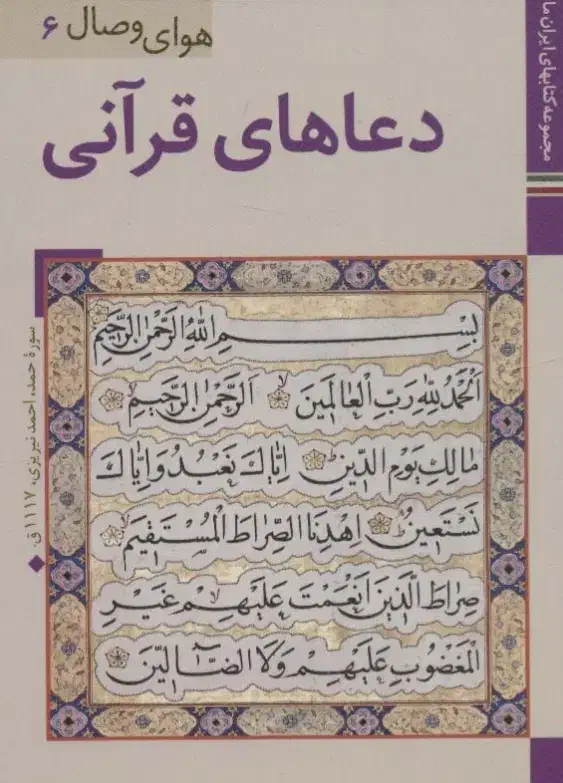 هوای وصال ۶
مجموعه کتابهای ایران ما
دعاهای قرآنی
بِسْمِ اللهِ الرَّحْمٰنِ الرَّحِیمِ
اَلْحَمْدُ لِلّٰهِ رَبِّ الْعَالَمِینَ اَلرَّحْمٰنِ الرَّحِیمِ
مَالِكِ یَوْمِ الدِّینِ اِیَّاكَ نَعْبُدُ وَاِیَّاكَ
نَسْتَعِینُ اِهْدِنَا الصِّرَاطَ الْمُسْتَقِیمَ
صِرَاطَ الَّذِینَ اَنْعَمْتَ عَلَیْهِمْ غَیْرِ
الْمَغْضُوبِ عَلَیْهِمْ وَلَا الضَّالِّینَ
سورهٔ حمد، احمد نیریزی، ۱۱۱۷ ق